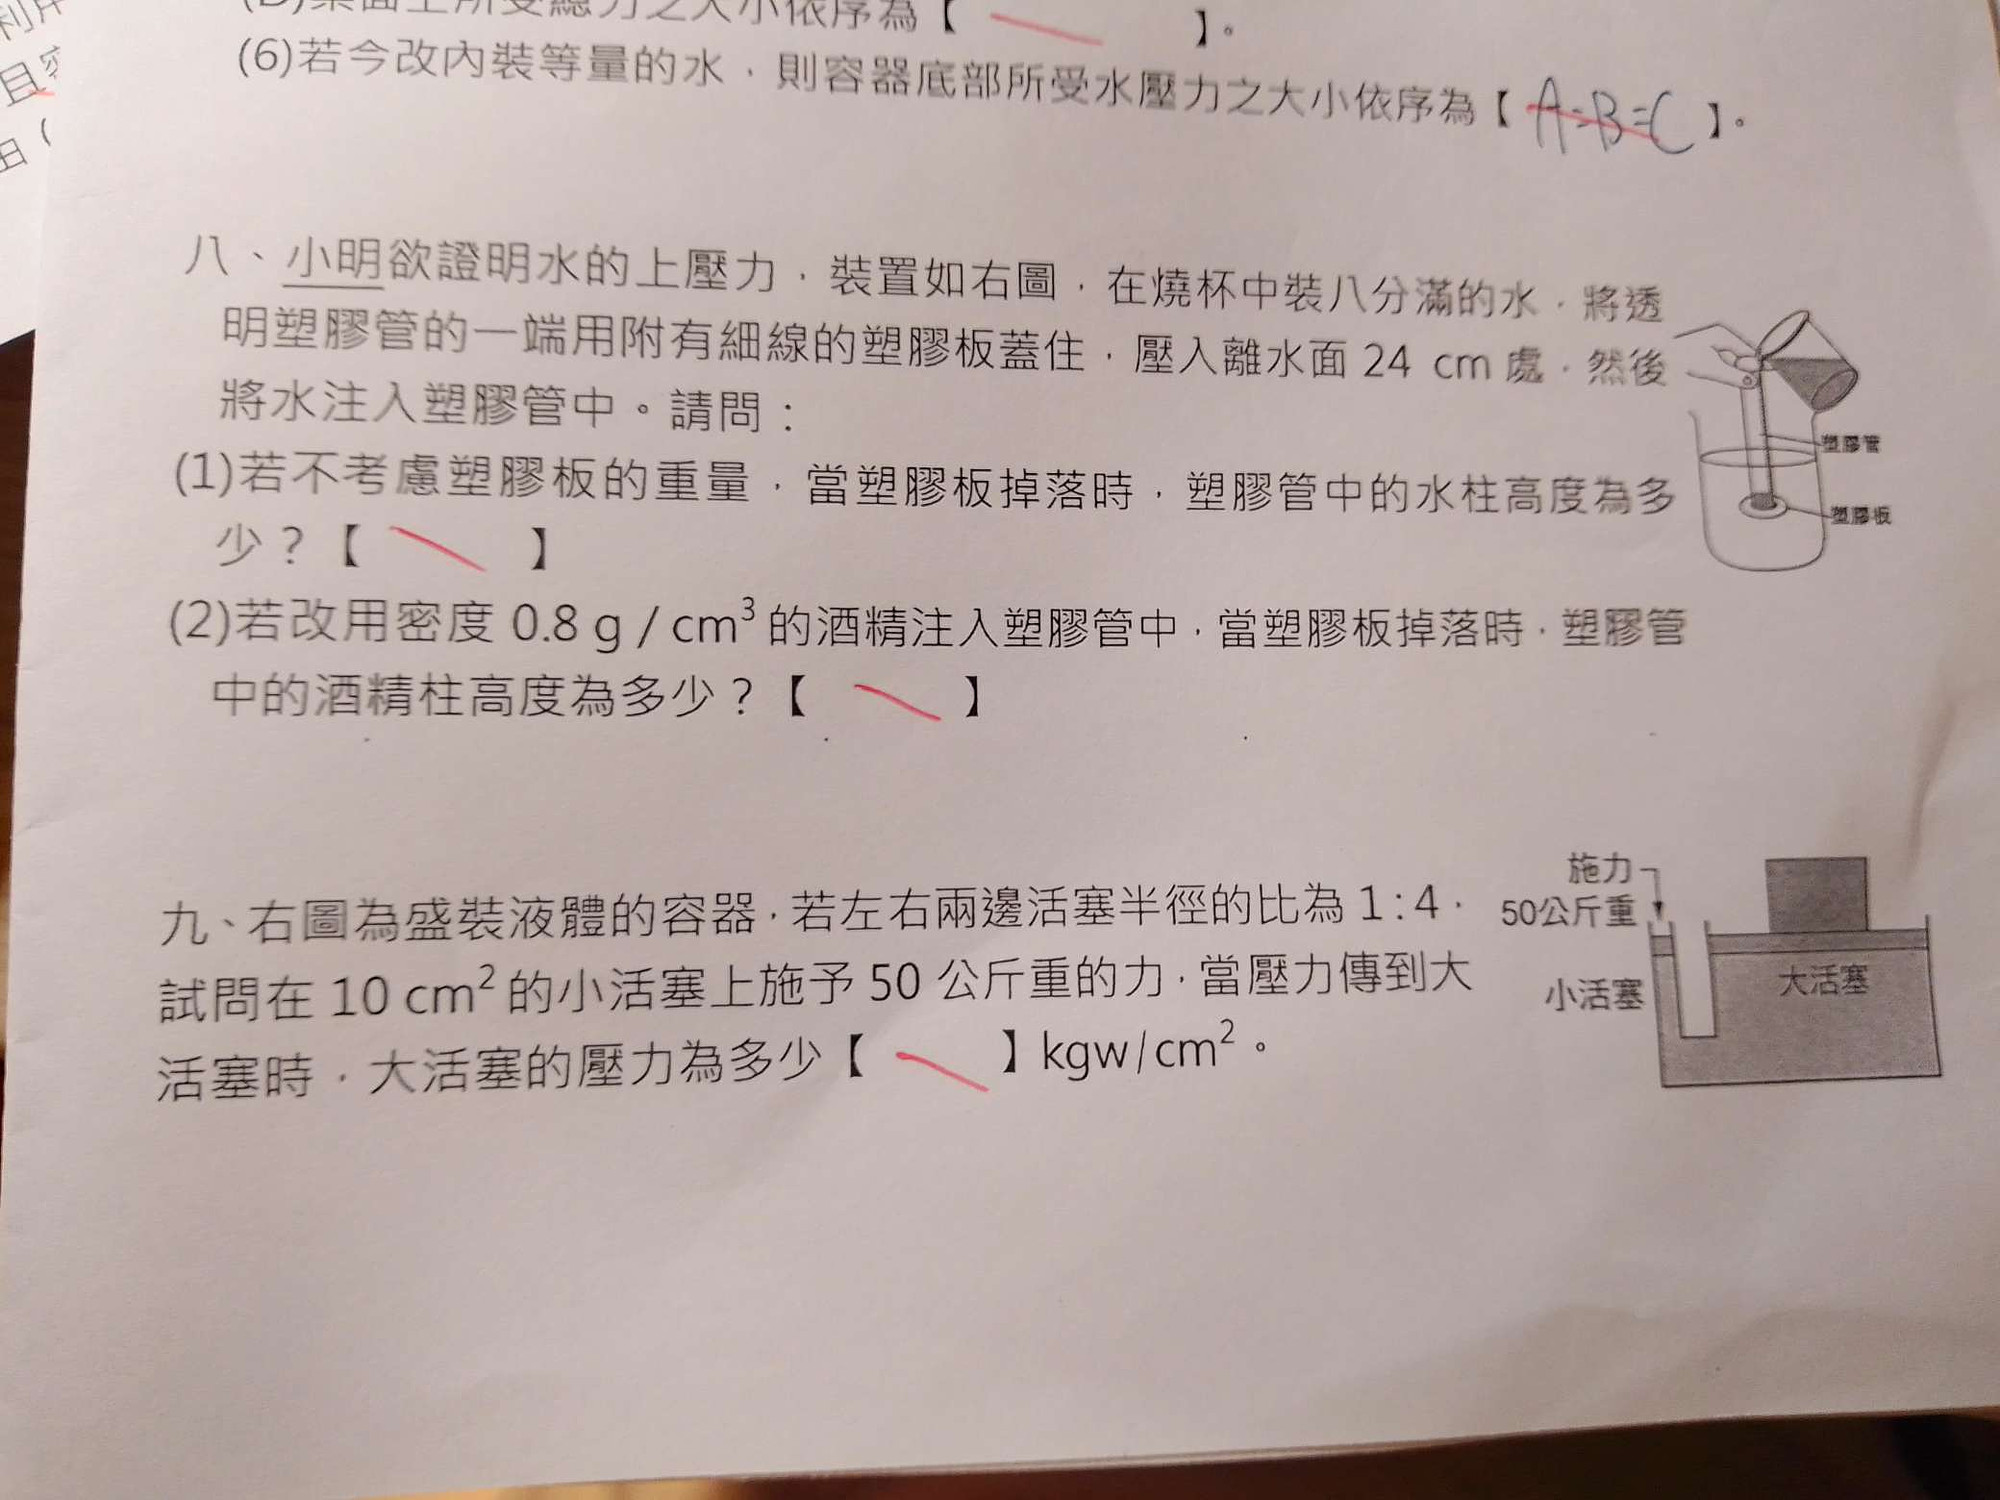 利用
且容
由(
(D)桌面上所受總力之大小依序為【 】。
(6)若今改內裝等量的水，則容器底部所受水壓力之大小依序為【 A=B=C 】。
八、小明欲證明水的上壓力，裝置如右圖，在燒杯中裝八分滿的水，將透
明塑膠管的一端用附有細線的塑膠板蓋住，壓入離水面 24 cm 處，然後
將水注入塑膠管中。請問：
塑膠管
(1)若不考慮塑膠板的重量，當塑膠板掉落時，塑膠管中的水柱高度為多
塑膠板
少？【 】
(2)若改用密度 0.8 g / cm³ 的酒精注入塑膠管中，當塑膠板掉落時，塑膠管
中的酒精柱高度為多少？【 】
九、右圖為盛裝液體的容器，若左右兩邊活塞半徑的比為 1：4，
試問在 10 cm² 的小活塞上施予 50 公斤重的力，當壓力傳到大
活塞時，大活塞的壓力為多少【 】kgw/cm²。
施力
50公斤重
小活塞
大活塞